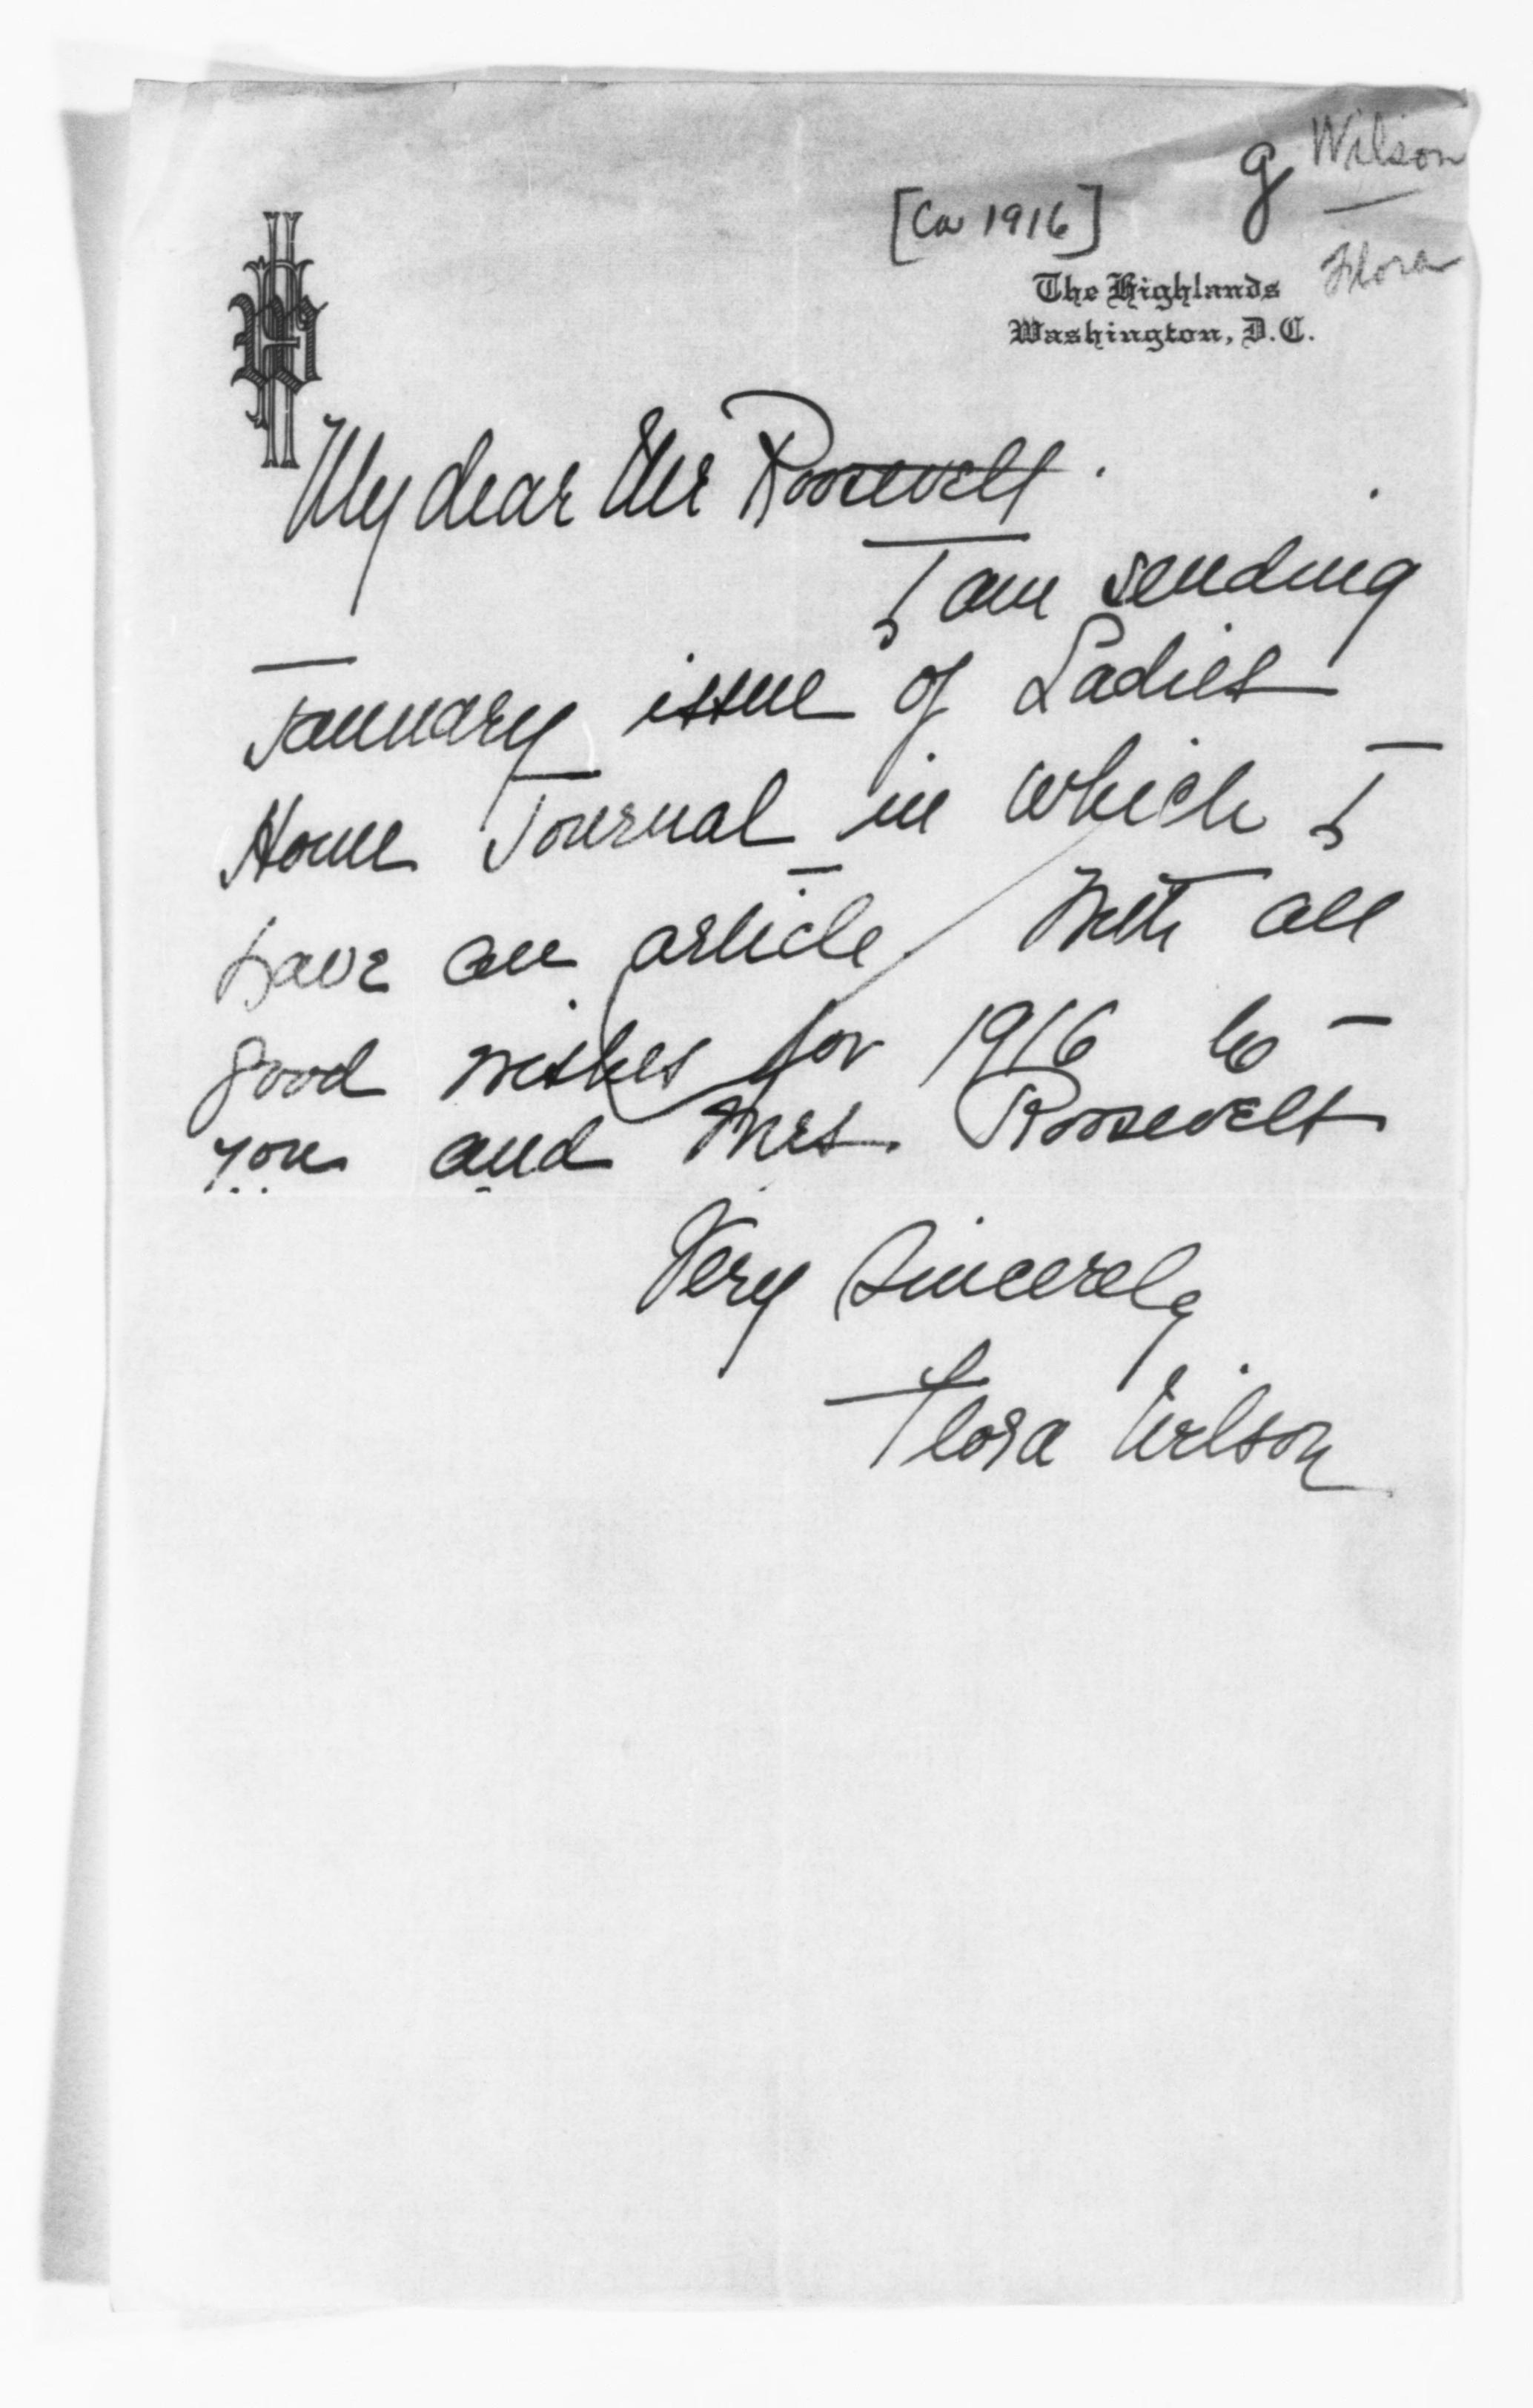 g Wilson
[Ca 1916]
Flora
The Highlands
Washington, D.C.
My dear Mr Roosevelt.
I am sending
January issue of Ladies
Home Journal in which I
have an article. With all
good wishes for 1916 to
you and Mrs. Roosevelt
Very Sincerely
Flora Wilson